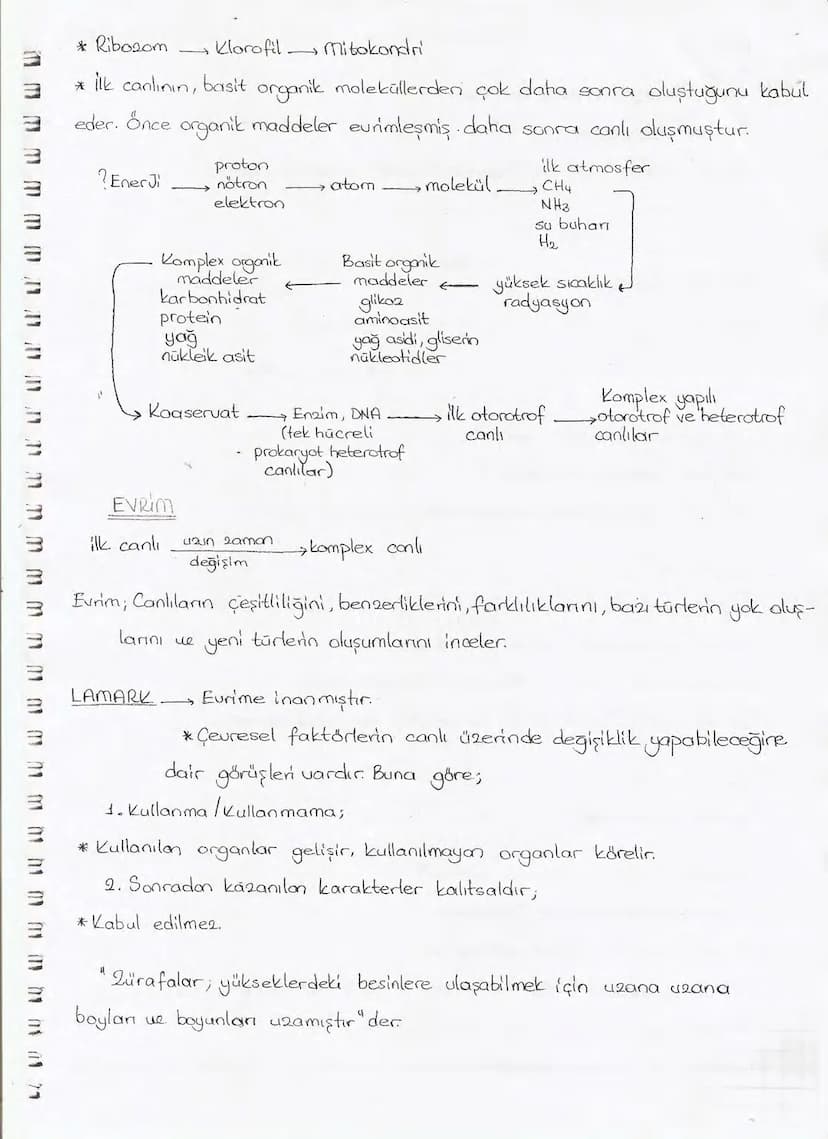 * Ribozom → Klorofil → Mitokondri
* İlk canlının, basit organik moleküllerden çok daha sonra oluştuğunu kabul
eder. Önce organik maddeler evrimleşmiş. daha sonra canlı oluşmuştur.
? Enerji → proton nötron elektron → atom → molekül → ilk atmosfer
CH4
NH3
su buharı
H2
yüksek sıcaklık
radyasyon
Basit organik
maddeler
glikoz
aminoasit
yağ asidi, gliserin
nükleotidler
Komplex organik
maddeler
karbonhidrat
protein
yağ
nükleik asit
→ Koaservat → Enzim, DNA → İlk otorotrof → Komplex yapılı
(tek hücreli canlı otorotrof ve heterotrof
- prokaryot heterotrof canlılar
canlılar)
EVRİM
ilk canlı uzun zaman → komplex canlı
değişim
Evrim; Canlıların çeşitliliğini, benzerliklerini, farklılıklarını, bazı türlerin yok oluş-
larını ve yeni türlerin oluşumlarını inceler.
LAMARK → Evrime inanmıştır.
* Çevresel faktörlerin canlı üzerinde değişiklik yapabileceğine
dair görüşleri vardır. Buna göre;
1. Kullanma / Kullanmama;
* Kullanılan organlar gelişir, kullanılmayan organlar körelir.
2. Sonradan kazanılan karakterler kalıtsaldır;
* Kabul edilmez.
"Zürafalar; yükseklerdeki besinlere ulaşabilmek için uzana uzana
boyları ve boyunları uzamıştır" der.